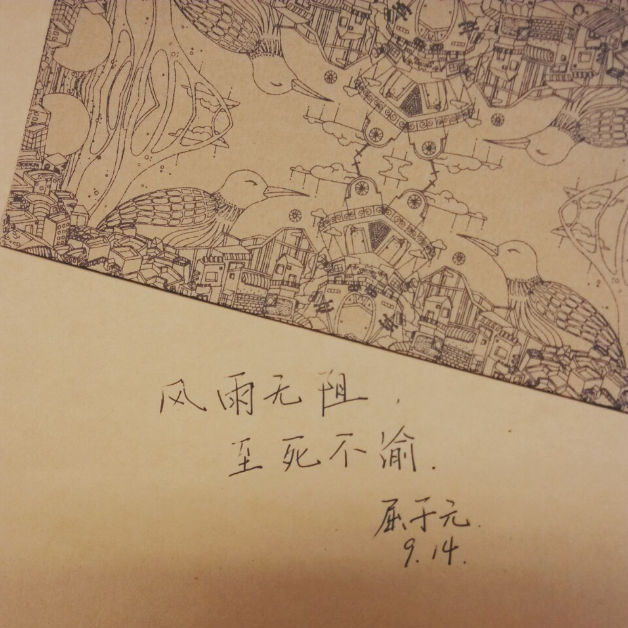 风雨无阻,
至死不渝.
屈于元.
9.14.